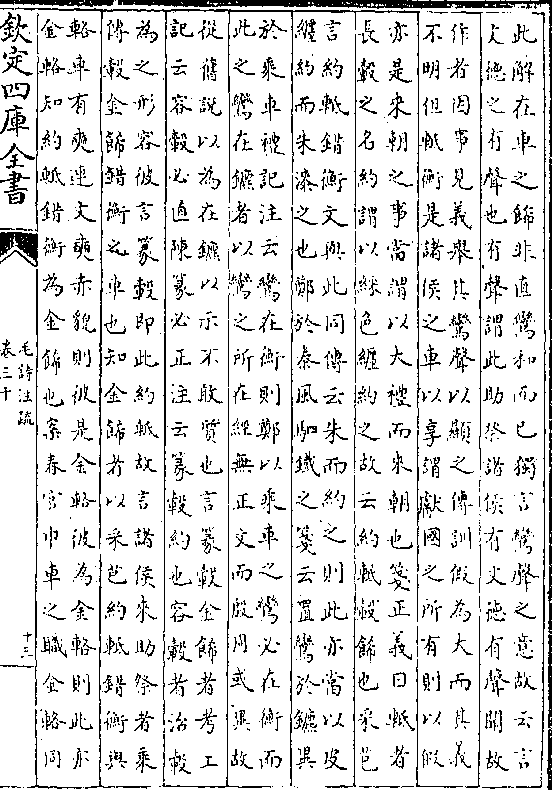 此解在車之飾非直鸞和而已獨言鸞聲之意故云言
文德之有聲也有聲謂此助祭諸侯有文德有聲聞故
作者因事見義舉其鸞聲以顯之傳訓假為大而其義
不明但軧衡是諸侯之車以享謂獻國之所有則以假
亦是來朝之事當謂以大禮而來朝也箋正義曰軧者
長轂之名約謂以綵色纏約之故云約軧轂飾也采芑
言約軧錯衡文與此同傳云朱而約之則此亦當以皮
纏約而朱漆之也鄭於秦風駟鐵之箋云置鸞於鑣異
於乘車禮記注云鸞在衡則鄭以乘車之鸞必在衡而
此之鸞在鑣者以鸞之所在經無正文而殷周或異故
從舊說以為在鑣以示不敢質也言篆轂金飾者考工
記云容轂必直陳篆必正注云篆轂約也容轂者治轂
為之形容彼言篆轂即此約軧故言諸侯來助祭者乘
傳轂金飾錯衡之車也知金飾者以采芑約軧錯衡與
輅車有奭連文奭赤貌則彼是金輅彼為金輅則此亦
金輅知約軧錯衡為金飾也案春官巾車之職金輅同
欽定四庫全書
毛詩注疏
卷三十
十三